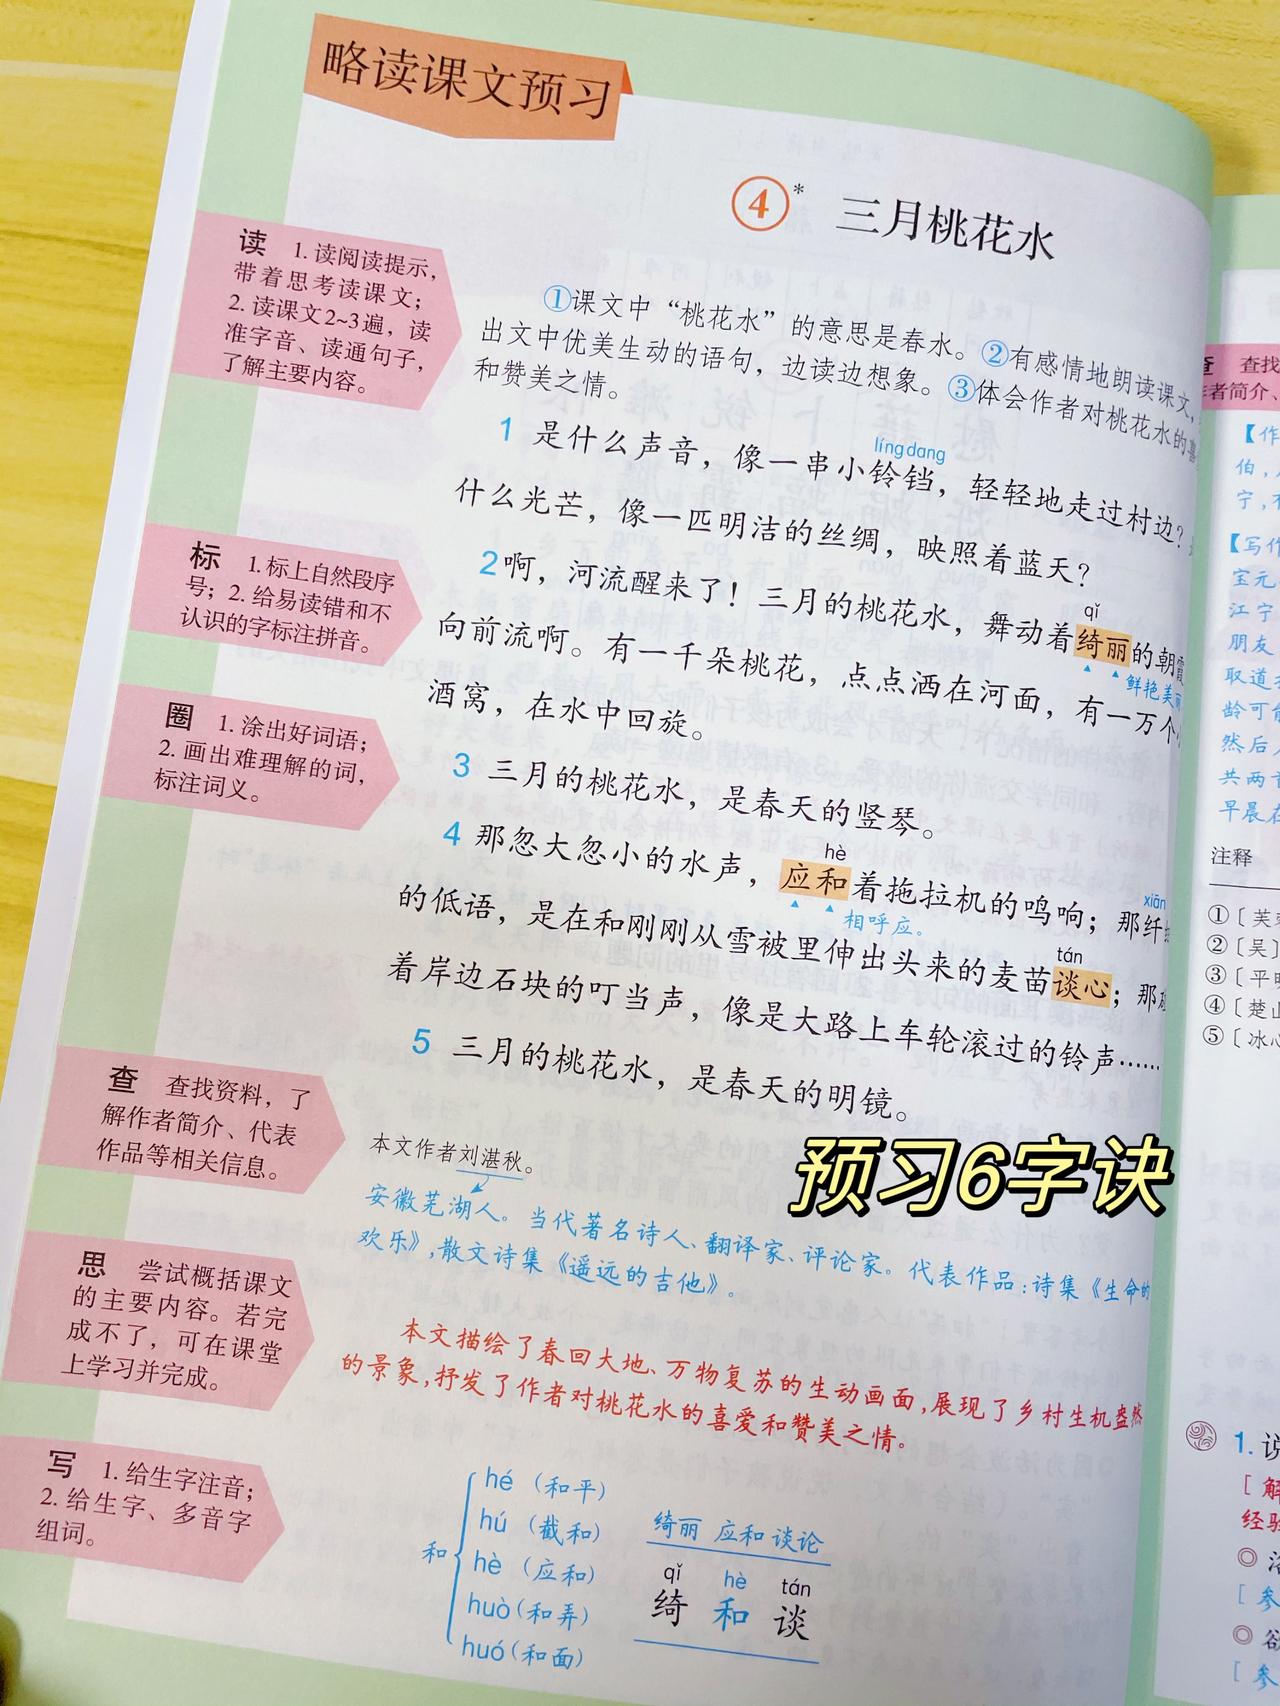 略读课文预习
④* 三月桃花水
读 1. 读阅读提示，
带着思考读课文；
2. 读课文2~3遍，读
准字音、读通句子，
了解主要内容。
①课文中“桃花水”的意思是春水。②有感情地朗读课文，
出文中优美生动的语句，边读边想象。③体会作者对桃花水的喜
和赞美之情。
língdang
1 是什么声音，像一串小铃铛，轻轻地走过村边？
什么光芒，像一匹明洁的丝绸，映照着蓝天？
标 1. 标上自然段序
号；2. 给易读错和不
认识的字标注拼音。
2 啊，河流醒来了！三月的桃花水，舞动着绮丽的朝霞
qǐ
鲜艳美丽
向前流啊。有一千朵桃花，点点洒在河面，有一万个小
酒窝，在水中回旋。
圈 1. 涂出好词语；
2. 画出难理解的词，
标注词义。
3 三月的桃花水，是春天的竖琴。
hè
4 那忽大忽小的水声，应和着拖拉机的鸣响；那纤细
xiān
相呼应。
的低语，是在和刚刚从雪被里伸出头来的麦苗谈心；那
tán
着岸边石块的叮当声，像是大路上车轮滚过的铃声……
5 三月的桃花水，是春天的明镜。
预习6字诀
查 查找资料，了
解作者简介、代表
作品等相关信息。
本文作者刘湛秋。
安徽芜湖人。当代著名诗人、翻译家、评论家。代表作品：诗集《生命的
欢乐》，散文诗集《遥远的吉他》。
思 尝试概括课文
的主要内容。若完
成不了，可在课堂
上学习并完成。
本文描绘了春回大地、万物复苏的生动画面，展现了乡村生机盎然
的景象，抒发了作者对桃花水的喜爱和赞美之情。
写 1. 给生字注音；
2. 给生字、多音字
组词。
和
hé（和平）
hú（截和）
hè（应和）
huò（和弄）
huó（和面）
绮丽 应和 谈论
qǐ hè tán
绮 和 谈
查 查找
者简介、
【作
伯，
宁，
【写作
宝元
江宁
朋友
取道
龄可能
然后
共两首
早晨在
注释
①〔芙蓉
②〔吴〕
③〔平明
④〔楚山
⑤〔冰心
1. 说
［解
经验
◎ 洛
［参
◎ 欲
［参